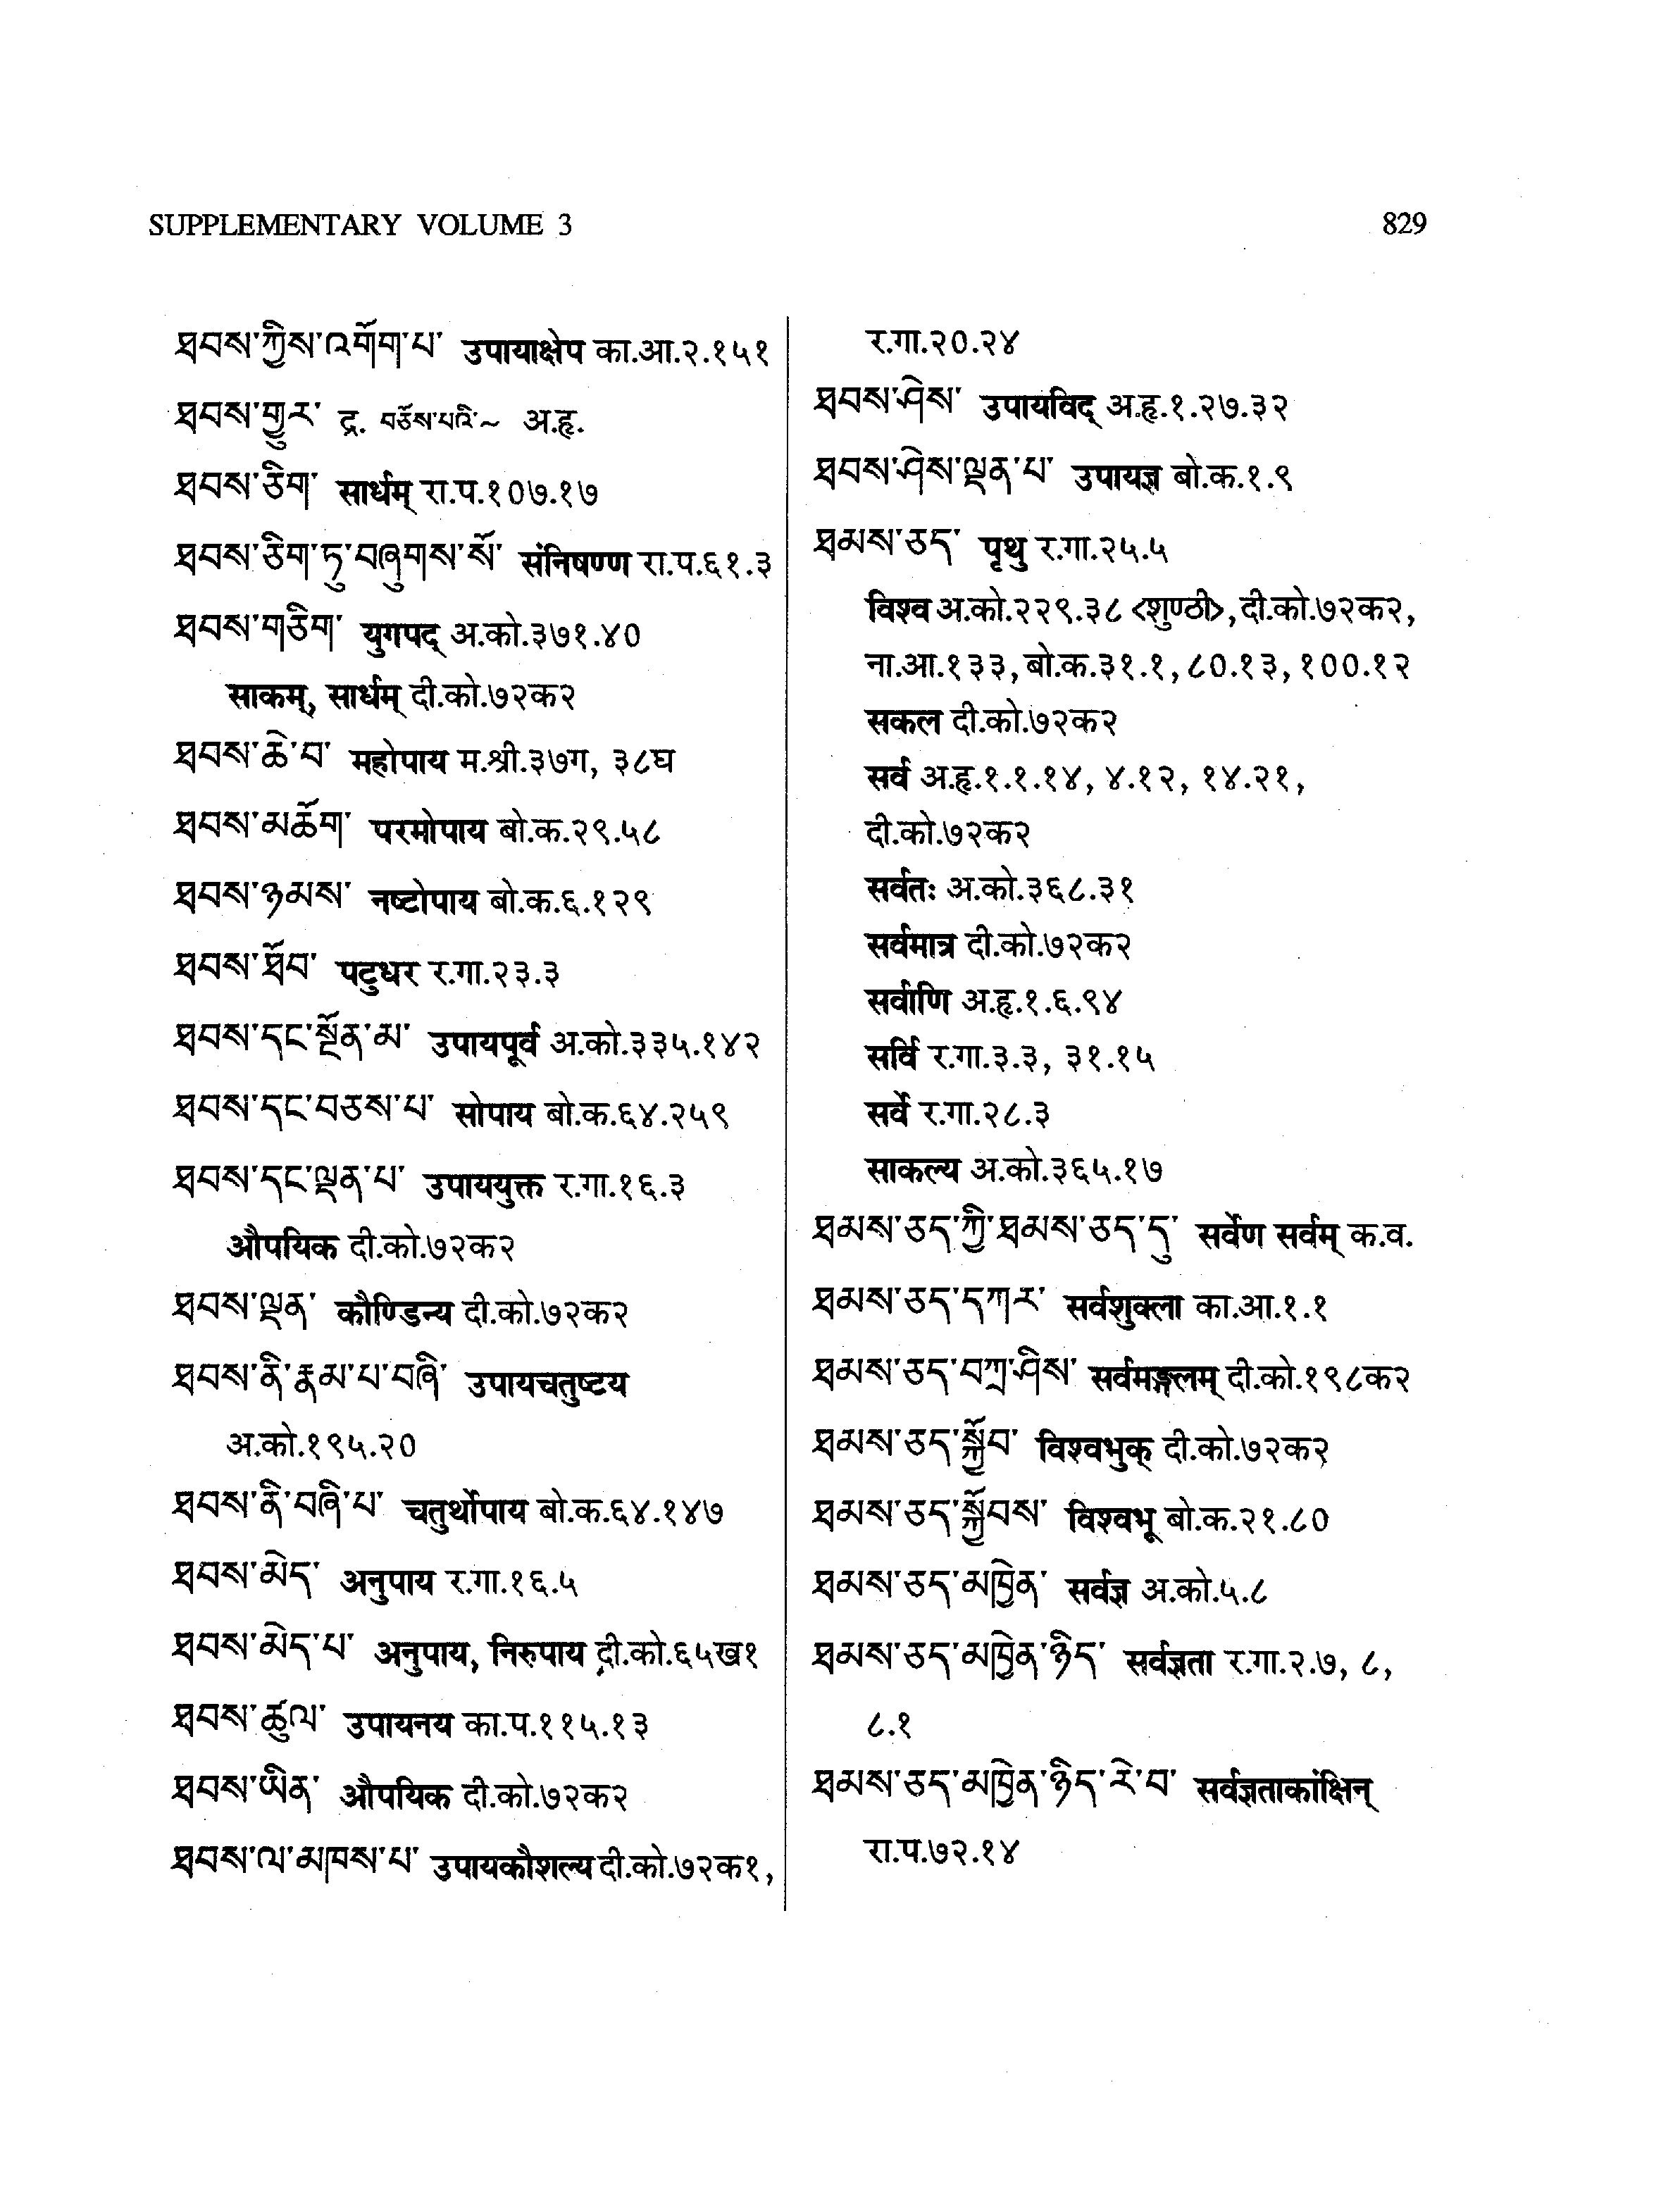 SUPPLEMENTARY VOLUME 3
829
ཐབས་ཀྱིས་འགོག་པ་ उपायाक्षेप का.आ.२.१५१
ཐབས་གྱུར་ द्र. བཅོས་པའི་~ अ.हृ.
ཐབས་ཅིག་ सार्धम् रा.प.१०७.१७
ཐབས་ཅིག་ཏུ་བཞུགས་སོ་ संनिषण्ण रा.प.६१.३
ཐབས་གཅིག་ युगपद् अ.को.३७१.४०
साकम्, सार्धम् दी.को.७२क२
ཐབས་ཆེ་བ་ महोपाय म.श्री.३७ग, ३८घ
ཐབས་མཆོག་ परमोपाय बो.क.२९.५८
ཐབས་ཉམས་ नष्टोपाय बो.क.६.१२९
ཐབས་ཐོབ་ पटुधर र.गा.२३.३
ཐབས་དང་སྔོན་མ་ उपायपूर्व अ.को.३३५.१४२
ཐབས་དང་བཅས་པ་ सोपाय बो.क.६४.२५९
ཐབས་དང་ལྡན་པ་ उपाययुक्त र.गा.१६.३
औपयिक दी.को.७२क२
ཐབས་ལྡན་ कौण्डिन्य दी.को.७२क२
ཐབས་ནི་རྣམ་པ་བཞི་ उपायचतुष्टय
अ.को.१९५.२०
ཐབས་ནི་བཞི་པ་ चतुर्थोपाय बो.क.६४.१४७
ཐབས་མེད་ अनुपाय र.गा.१६.५
ཐབས་མེད་པ་ अनुपाय, निरुपाय दी.को.६५ख१
ཐབས་ཚུལ་ उपायनय का.प.११५.१३
ཐབས་ཡིན་ औपयिक दी.को.७२क२
ཐབས་ལ་མཁས་པ་ उपायकौशल्य दी.को.७२क१,
र.गा.२०.२४
ཐབས་ཤེས་ उपायविद् अ.हृ.१.२७.३२
ཐབས་ཤེས་ལྡན་པ་ उपायज्ञ बो.क.१.९
ཐམས་ཅད་ पृथु र.गा.२५.५
विश्व अ.को.२२९.३८ <शुण्ठी>, दी.को.७२क२,
ना.आ.१३३, बो.क.३१.१, ८०.१३, १००.१२
सकल दी.को.७२क२
सर्व अ.हृ.१.१.१४, ४.१२, १४.२१,
दी.को.७२क२
सर्वतः अ.को.३६८.३१
सर्वमात्र दी.को.७२क२
सर्वाणि अ.हृ.१.६.९४
सर्वि र.गा.३.३, ३१.१५
सर्वे र.गा.२८.३
साकल्य अ.को.३६५.१७
ཐམས་ཅད་ཀྱི་ཐམས་ཅད་དུ་ सर्वेण सर्वम् क.व.
ཐམས་ཅད་དཀར་ सर्वशुक्ला का.आ.१.१
ཐམས་ཅད་བཀྲ་ཤིས་ सर्वमङ्गलम् दी.को.१९८क२
ཐམས་ཅད་སྐྱོབ་ विश्वभुक् दी.को.७२क२
ཐམས་ཅད་སྐྱོབས་ विश्वभू बो.क.२१.८०
ཐམས་ཅད་མཁྱེན་ सर्वज्ञ अ.को.५.८
ཐམས་ཅད་མཁྱེན་ཉིད་ सर्वज्ञता र.गा.२.७, ८,
८.१
ཐམས་ཅད་མཁྱེན་ཉིད་རེ་བ་ सर्वज्ञताकांक्षिन्
रा.प.७२.१४